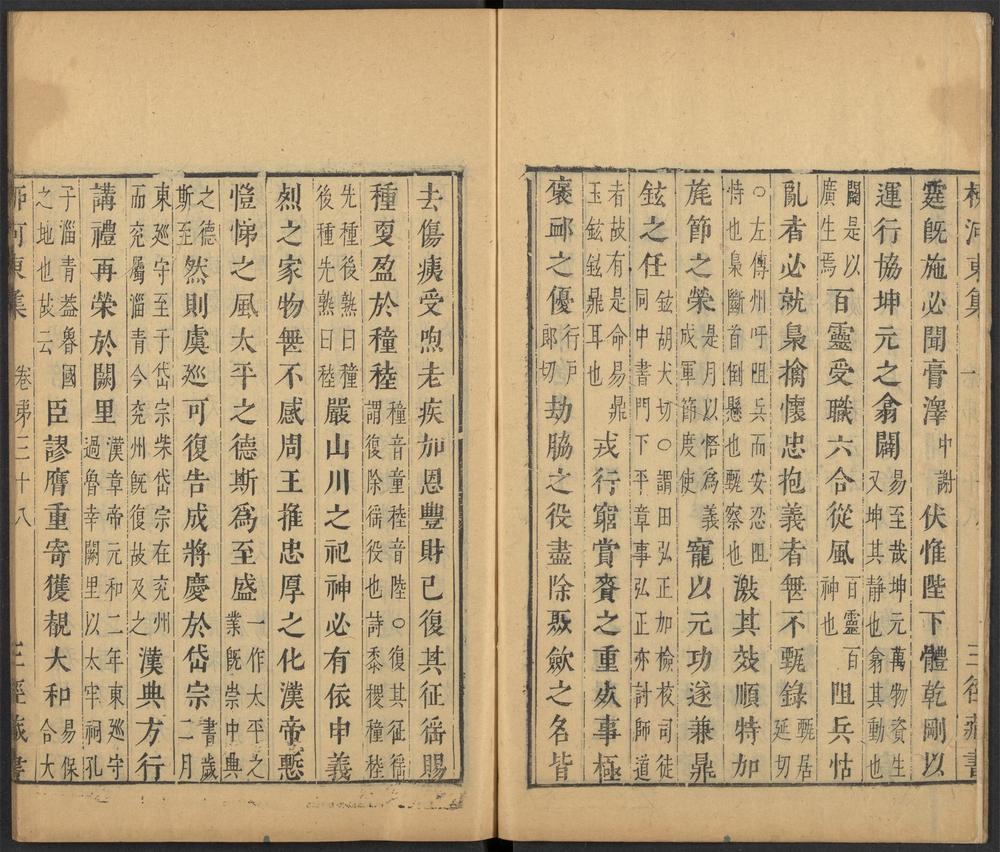 柳河東集 三徑藏書
霆既施必聞膏澤中謝伏惟陛下體乾剛以
運行協坤元之翕闢易至哉坤元萬物資生又坤其靜也翕其動也
闢是以廣生焉百靈受職六合從風百靈百神也阻兵怙
亂者必就梟擒懷忠抱義者無不甄錄甄居延切
○左傳州吁阻兵而安忍阻恃也梟斷首倒懸也甄察也激其效順特加
旄節之榮是月以悟為義成軍節度使寵以元功遂兼鼎
鉉之任鉉胡犬切○謂田弘正加檢校司徒同中書門下平章事弘正亦討師道
者故有是命易鼎玉鉉鉉鼎耳也戎行窮賞賚之重庶事極
褒䘏之優行戶郎切劫脇之役盡除聚歛之名皆
去傷痍受煦老疾加恩豐財已復其征徭賜
種更盈於穜稑穜音童稑音陸○復其征徭謂復除徭役也詩黍稷穜稑
先種後熟曰穜後種先熟曰稑嚴山川之祀神必有依申義
烈之家物無不感周王推忠厚之化漢帝慙
愷悌之風太平之德斯為至盛一作太平之業既崇中典
之德斯至然則虞巡可復告成將慶於岱宗書歲二月
東巡守至于岱宗柴岱宗在兗州而兗屬淄青今兗州既復故及之漢典方行
講禮再榮於闕里漢章帝元和二年東巡守過魯幸闕里以太牢祠孔
子淄青葢魯國之地也故云臣謬膺重寄獲覩大和易保合大
柳河東集 卷第三十八 三徑藏書